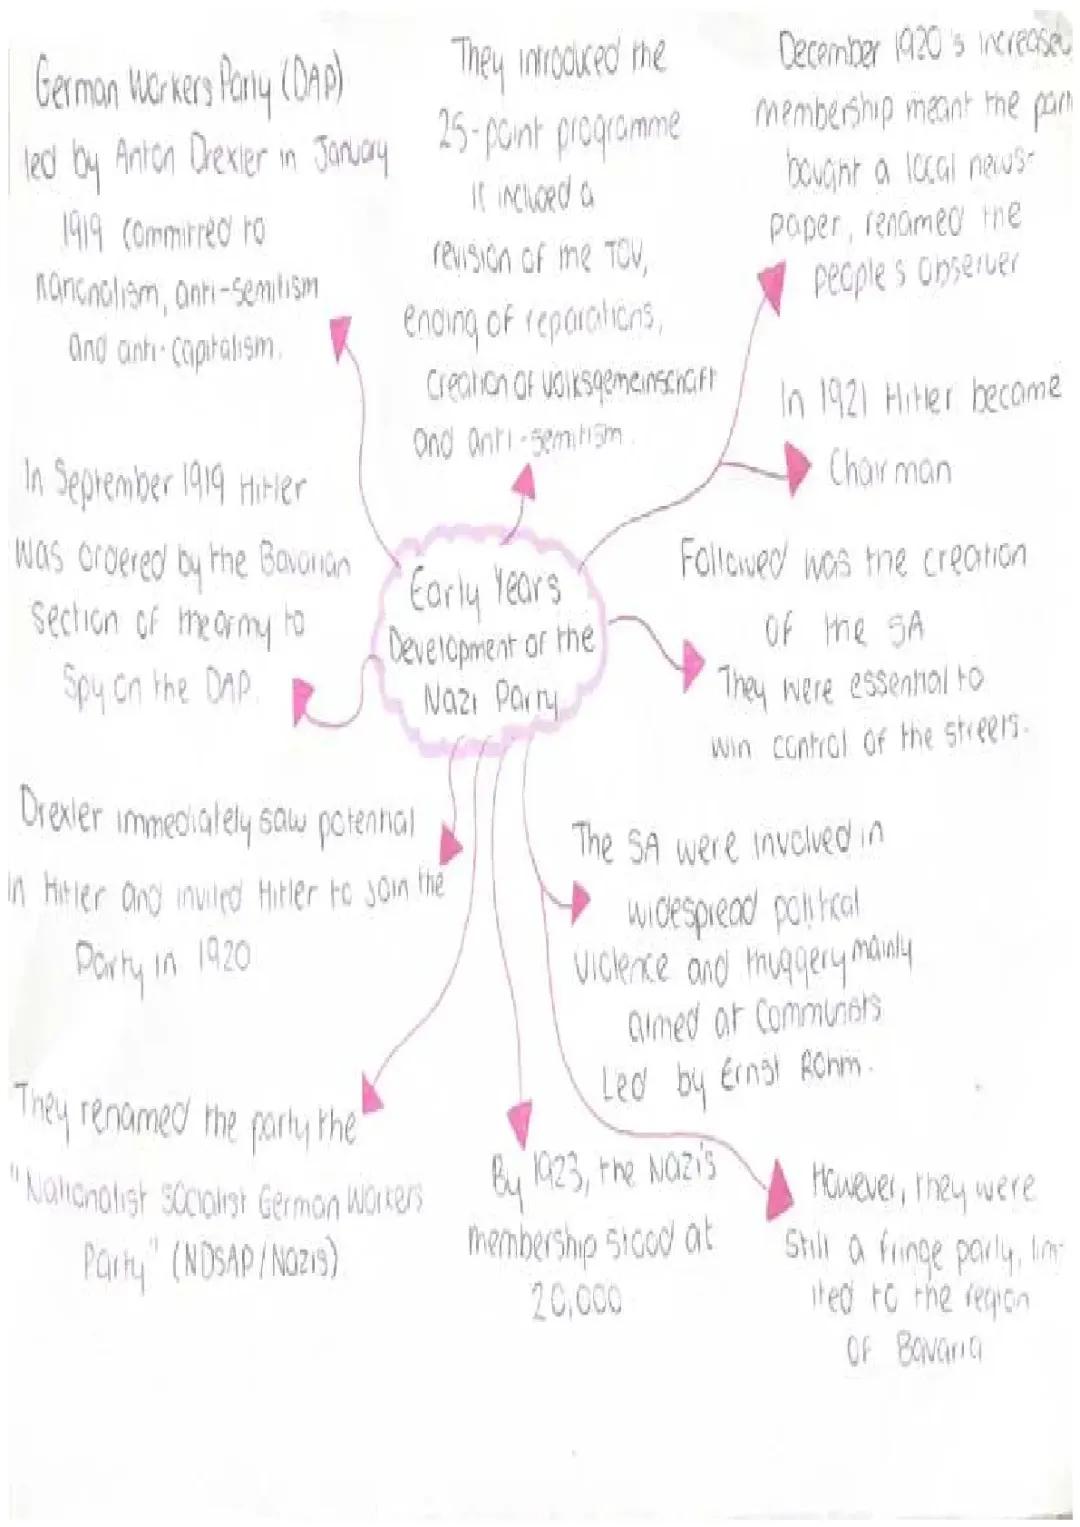 German Workers Party (DAP)
led by Anton Drexler in January
1919 committed to
nationalism, anti-semitism
and anti-capitalism.
They introduced the
25-point programme
it included a
revision of the TOV,
ending of reparations,
creation of volksgemeinschaft
and anti-semitism.
December 1920's increased
membership meant the part
bought a local news-
paper, renamed the
people's observer
In 1921 Hitler became
Chairman
In September 1919 Hitler
was ordered by the Bavarian
section of the army to
spy on the DAP.
Early Years
Development of the
Nazi Party
Followed was the creation
of the SA
They were essential to
win control of the streets.
Drexler immediately saw potential
in Hitler and invited Hitler to join the
Party in 1920
The SA were involved in
widespread political
violence and thuggery mainly
aimed at Communists
Led by Ernst Rohm.
They renamed the party the
"Nationalist socialist German Workers
Party" (NDSAP/Nazis)
By 1923, the Nazi's
membership stood at
20,000
However, they were
still a fringe party, lim-
ited to the region
of Bavaria